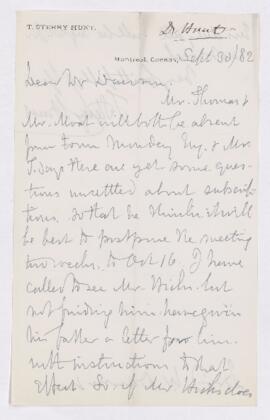 T. STERRY HUNT.
Dr. Hunt
Montreal, Canada, Sept 30/82
Dear Dr Dawson.
Mr. Thomas &
Mr. Moat will both be absent
from town Monday Evg. & Mr
T. says there are yet some ques-
tions unsettled about subscrip-
tions, so that he thinks it will
be best to postpone the meeting
two weeks, to Oct 16. I have
called to see Mr. Hicks but
not finding him, have given
his father a letter for him.
with instructions to that
effect. So if Mr Hicks does